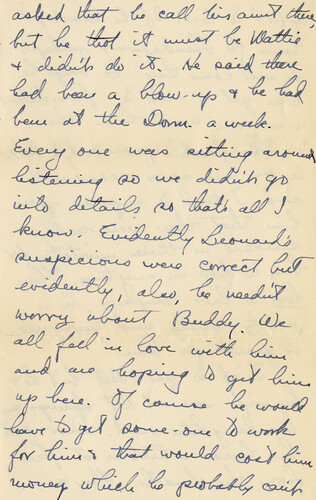 asked that he call his aunt there,
but he thot it must be Wattie
& didn't do it. He said there
had been a blow-up & he had
been at the Dorm. a week.
Every one was sitting around
listening so we didn't go
into details, so that's all I
know. Evidently Leonard's
suspicions were correct but
evidently, also, he needn't
worry about Buddy. We
all fell in love with him
and are hoping to get him
up here. Of course he would
have to get some-one to work
for him & that would cost him
money which he probably can't